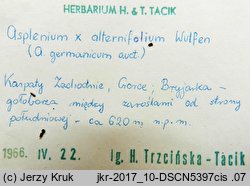 HERBARIUM H. & T. TACIK
Asplenium x alternifolium Wulfen
(A. germanicum auct.)
Karpaty Zachodnie, Gorce; Bryjarka -
gołoborza między zaroślami od strony
południowej - ca 620 m n.p.m.
1966. IV. 22. lg. H. Trzcińska-Tacik
(c) Jerzy Kruk jkr-2017_10-DSCN5397cis .07